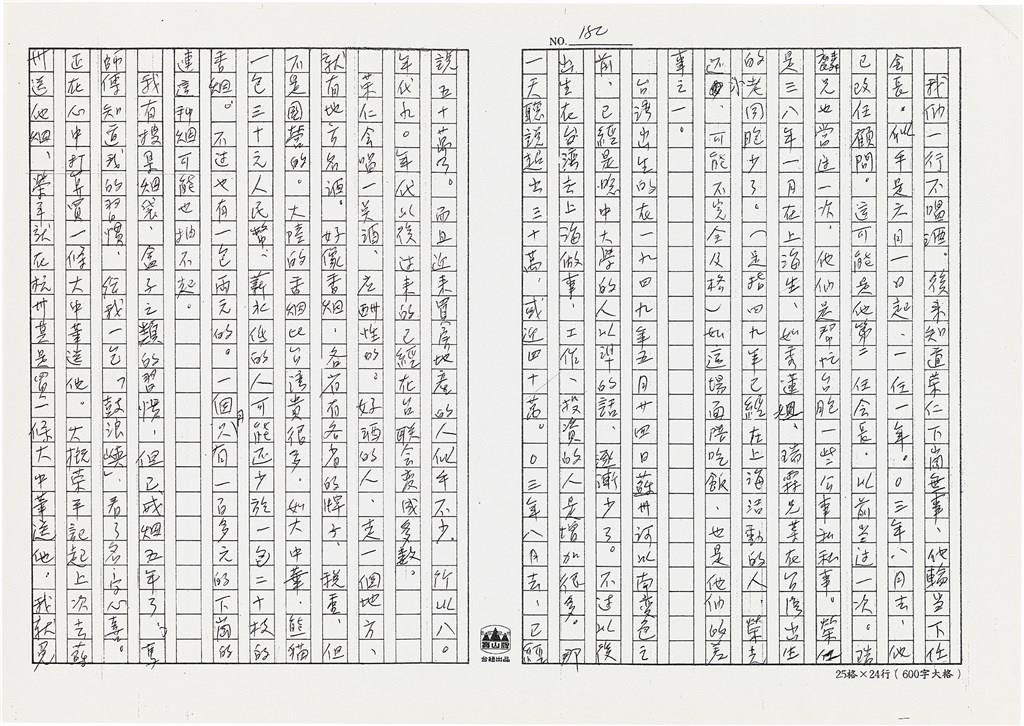 NO. 182
我们一行不喝酒。後来知道荣仁下崗無事、他輪当下任
会長。似乎是六月一日起、一任一年。0三年八月去、他
已改任顧問。這可能是他第二任会長。以前当过一次。瑞
麟兄也當过一次。他们是帮忙台胞一些公事私事。榮仁
是三八年一月在上海生、如秀蓮姐、瑞霖兄莫在台湾出生
的老同胞少了。(是指四九年已經在上海活動的人、榮先
还、可能不完全及格)如這場面陪吃飯、也是他们的差
事之一。
台湾出生的在一九四九年五月廿四日蘇州河以南变色之
前、已經是唸中大学的人以
的話、逐漸少了。不过以後
出生在台湾去上海做事、工作、投資的人是增加很多。那
一天聽説超出三十萬、或近四十萬。0三年八月去、已經
説五十萬了。而且近来買房地産的人似乎不少。所以八0
年代九0年代以後过来的已經在台联会变成多数。
荣仁会喝一关酒、应酬性的。好酒的人、走一個地方、
就有地方名酒。好像香烟、各省有各省的牌子、税重、但
不是國營的。大陸的香烟比台湾貴很多。如大中華、熊猫
一包三十元人民幣、薪水低的人可能还少於一包二十枝的
香烟。不过也有一包兩元的。一個月只有一百多元的下崗的
連這种烟可能也抽不起。
我有搜集烟袋、盒子之類的習慣、但已戒烟五年了、
師傅知道我的習慣、给我一包「鼓浪嶼」、看了名字心喜。
正在心中打算買一條大中華送他。大概荣平記起上次去蘇
州送他烟、榮平就在杭州莫是買一條大中華送他。我就免
台社出品
25格×24行(600字大格)